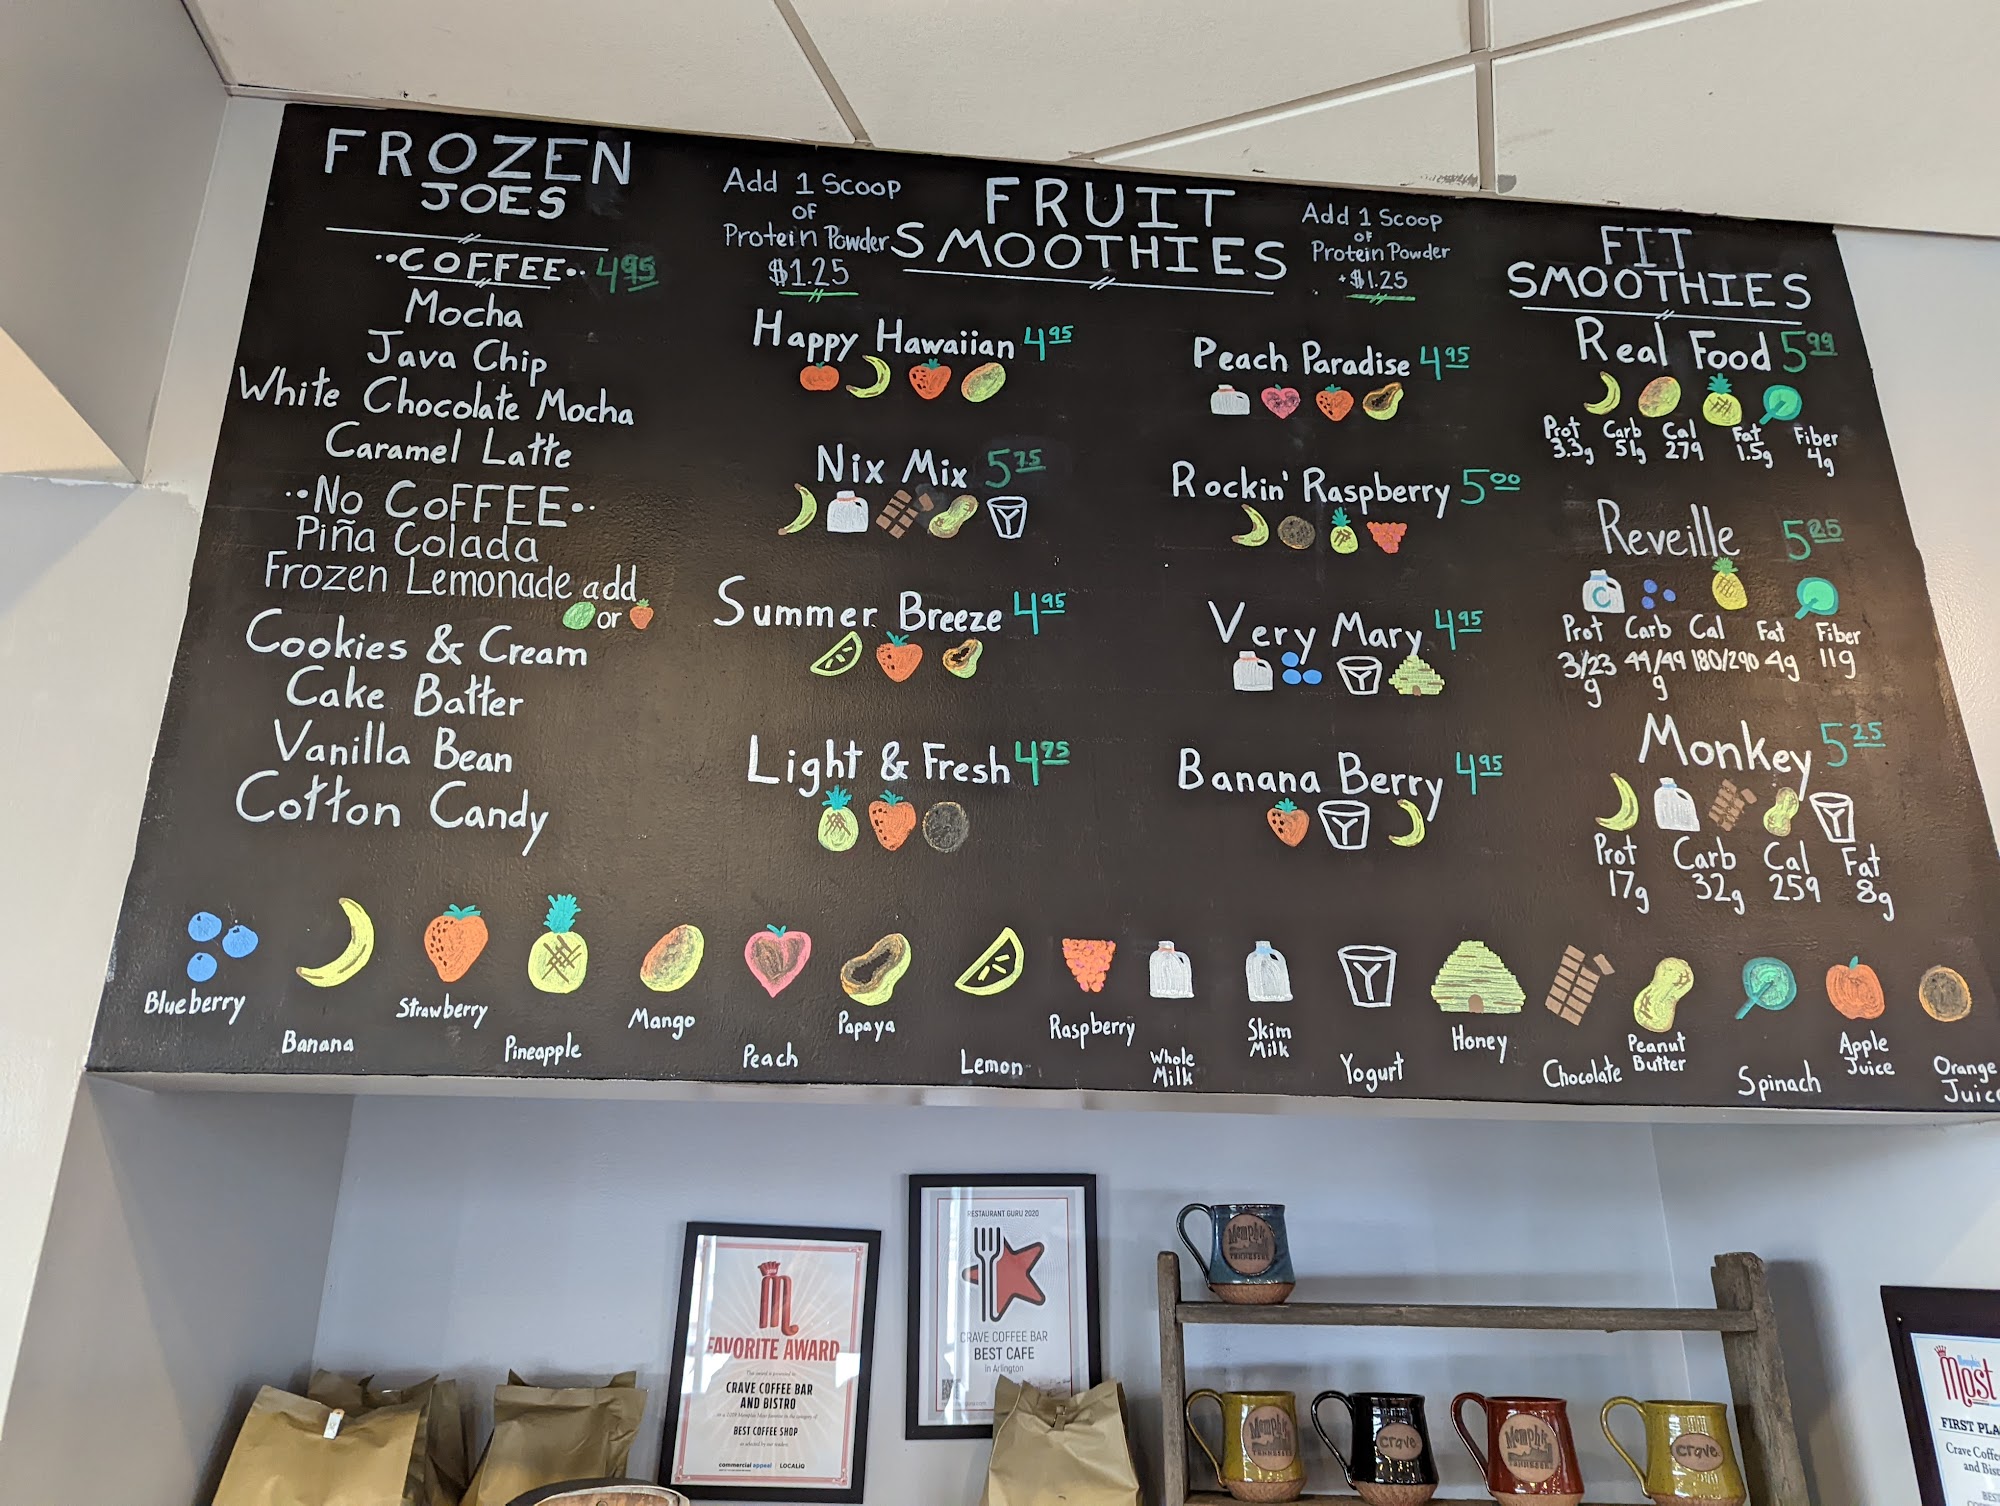 FROZEN
JOES
COFFEE 4.95
Mocha
Java Chip
White Chocolate Mocha
Caramel Latte
No COFFEE
Piña Colada
Frozen Lemonade add
or
Cookies & Cream
Cake Batter
Vanilla Bean
Cotton Candy
Add 1 Scoop
OF
Protein Powder
$1.25
FRUIT
SMOOTHIES
Add 1 Scoop
OF
Protein Powder
+$1.25
Happy Hawaiian 4.95
Nix Mix 5.75
Summer Breeze 4.95
Light & Fresh
Peach Paradise 4.95
Rockin' Raspberry 5.00
Very Mary 4.95
Banana Berry 4.95
FIT
SMOOTHIES
Real Food 5.99
Prot Carb Cal Fat Fiber
3.3g 51g 279 1.5g 4g
Reveille 5.25
C
Prot Carb Cal Fat Fiber
3/23 49/49 180/290 4g 11g
g g
Monkey 5.25
Prot Carb Cal Fat
17g 32g 259 8g
Blueberry
Banana
Strawberry
Pineapple
Mango
Peach
Papaya
Lemon
Raspberry
Whole
Milk
Skim
Milk
Yogurt
Honey
Chocolate
Peanut
Butter
Spinach
Apple
Juice
Orange
Juice
m
FAVORITE AWARD
CRAVE COFFEE BAR
AND BISTRO
BEST COFFEE SHOP
commercial appeal LOCALiQ
RESTAURANT GURU 2020
CRAVE COFFEE BAR
BEST CAFE
in Arlington
Memphis
TENNESSEE
Memphis
TENNESSEE
crave
Memphis
TENNESSEE
crave
Memphis
Most
FIRST PLA
Crave Coffe
and Bis